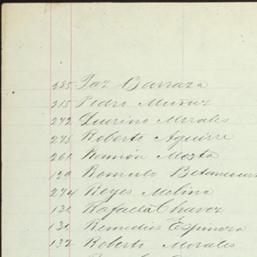 Paz Barraza
215 Pedro Muñuz
242 Quirino Morales
248 Roberto Aguirre
261 Ramón
Romulo Betancourt
274 Reyes Molina
131 Rafaela Chavez
131 Remedios Espinoza
132 Roberto Morales